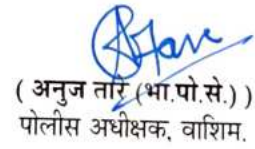 ( अनुज तारे (भा.पो.से.) )
पोलीस अधीक्षक, वाशिम.